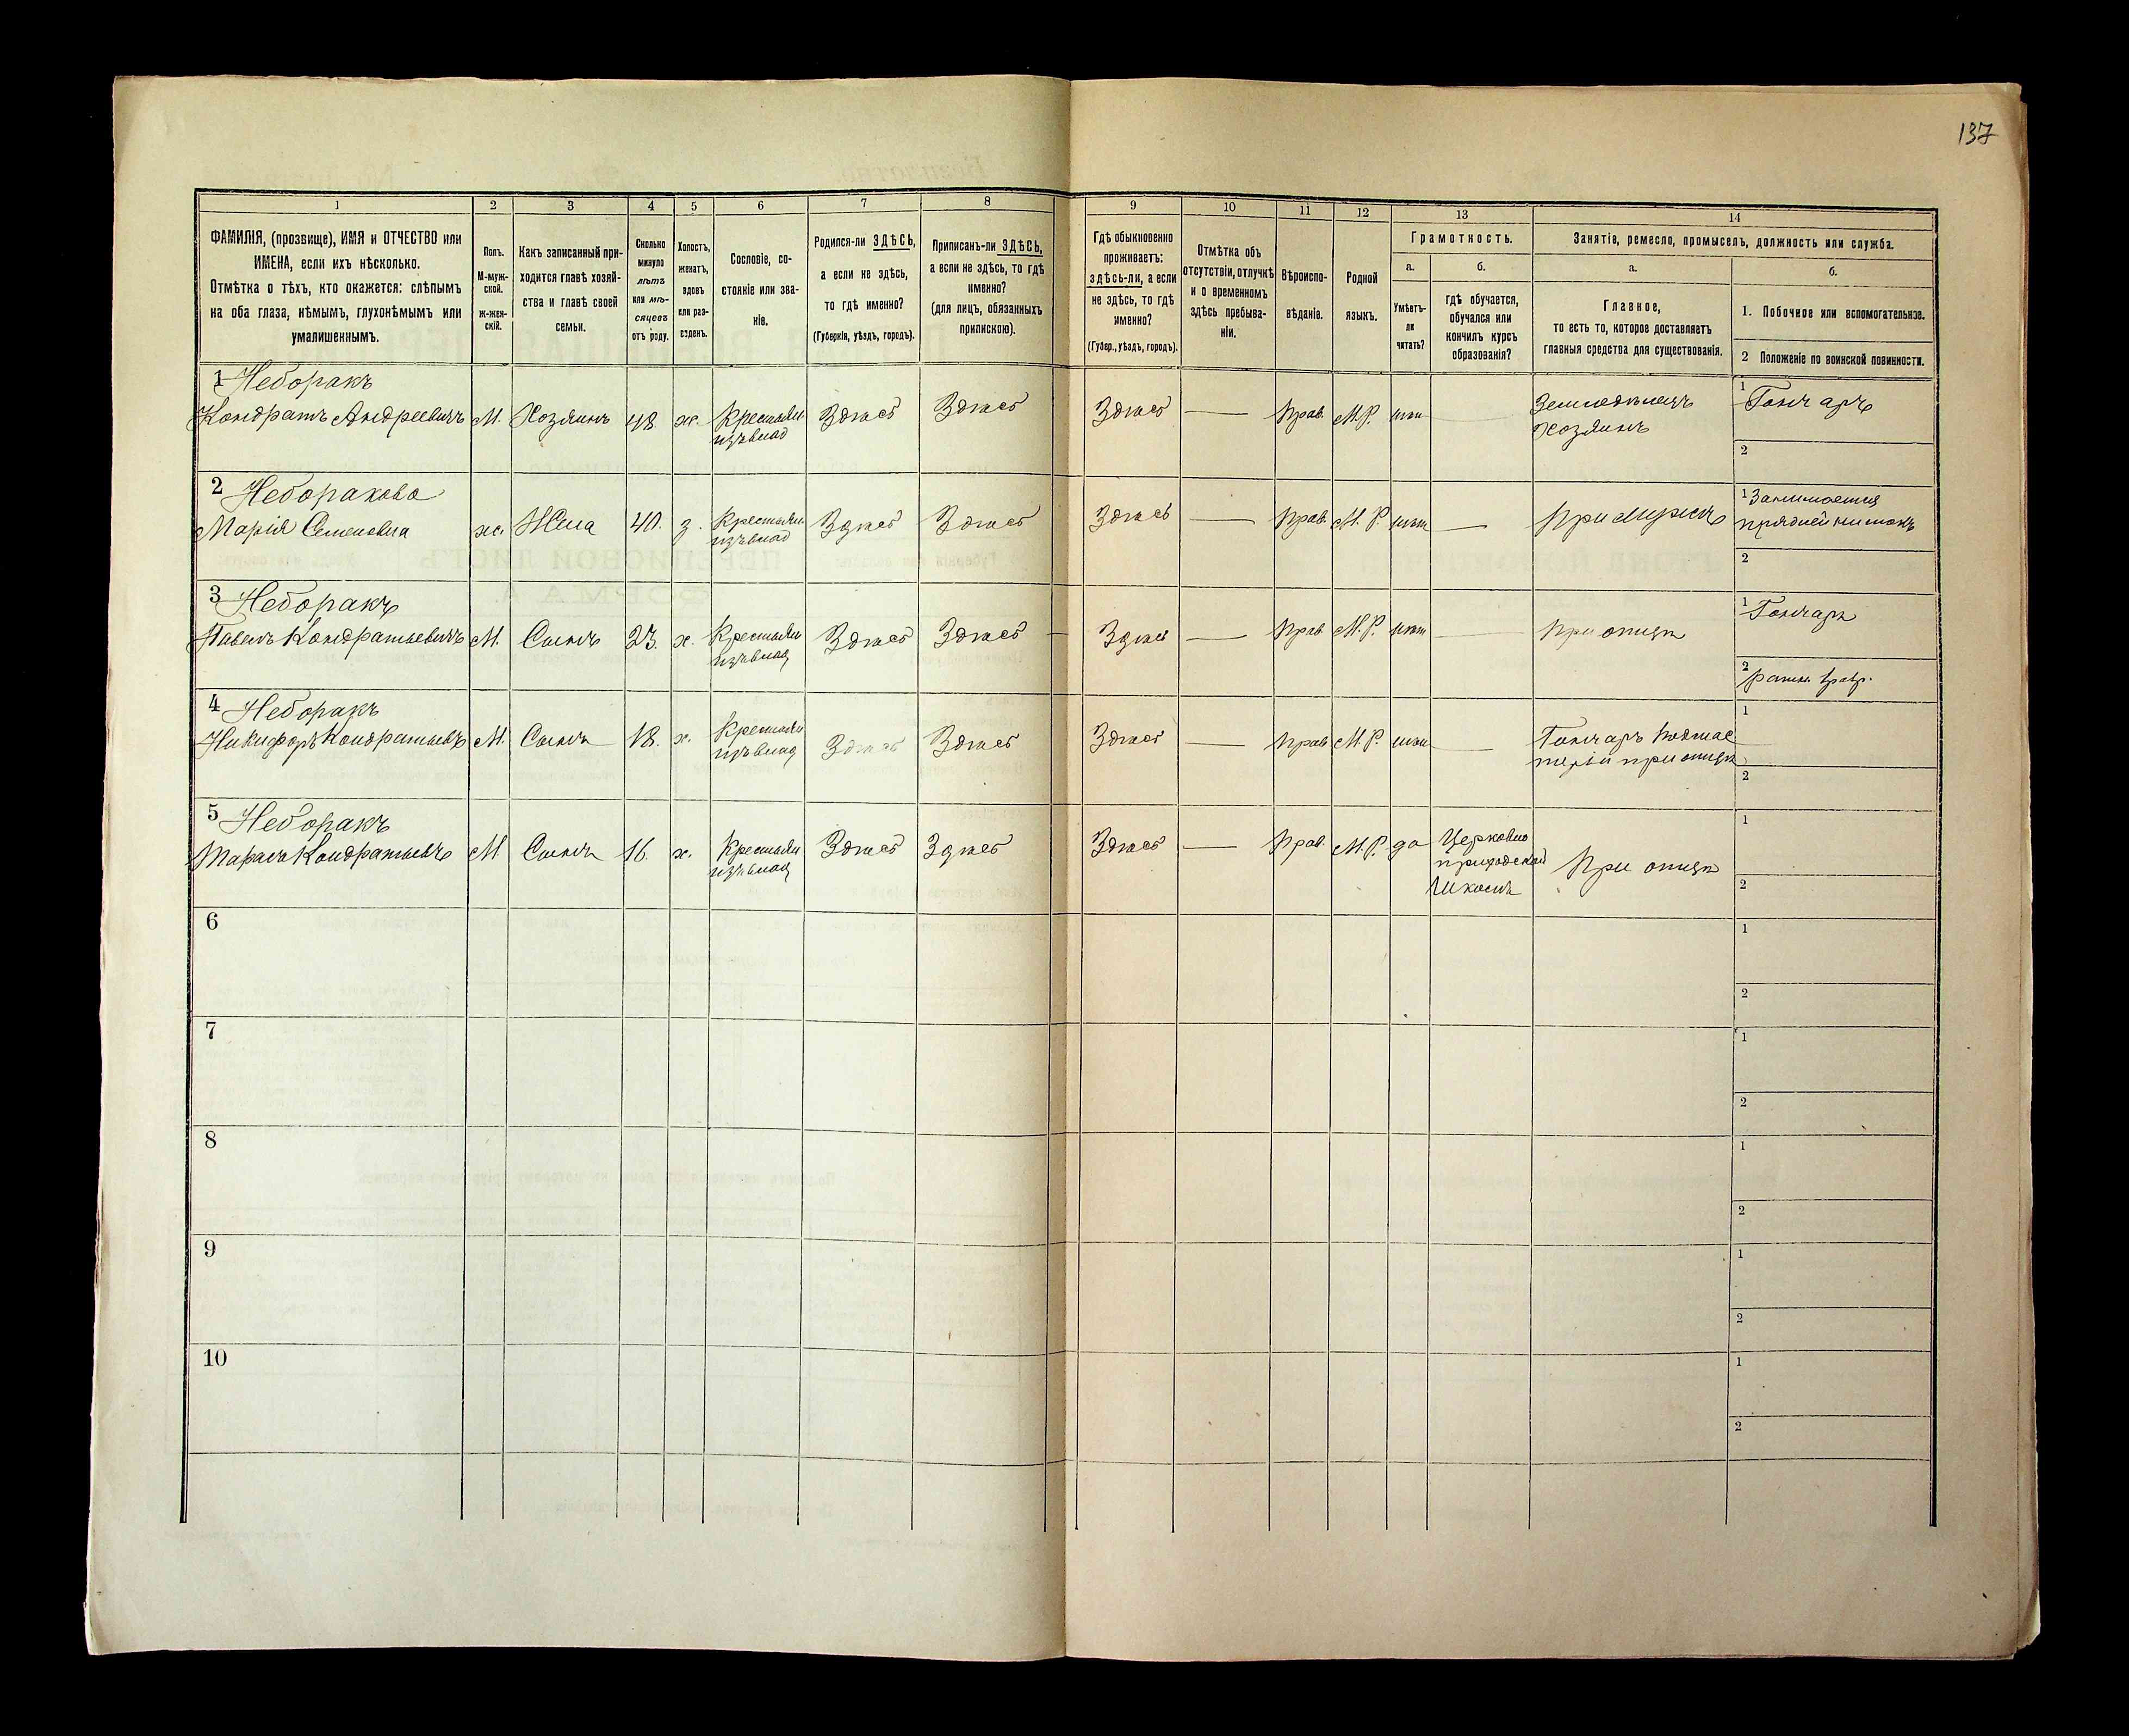 137
1
2
3
4
5
6
7
8
9
10
11
12
13
14
ФАМИЛІЯ, (прозвище), ИМЯ и ОТЧЕСТВО или
ИМЕНА, если ихъ нѣсколько.
Отмѣтка о тѣхъ, кто окажется: слѣпымъ
на оба глаза, нѣмымъ, глухонѣмымъ или
умалишеннымъ.
Полъ.
М-муж-
ской.
Ж-жен-
скій.
Какъ записанный при-
ходится главѣ хозяй-
ства и главѣ своей
семьи.
Сколько
минуло
лѣтъ
или мѣ-
сяцевъ
отъ роду.
Холостъ,
женатъ,
вдовъ
или раз-
веденъ.
Сословіе, со-
стояніе или зва-
ніе.
Родился-ли ЗДѢСЬ,
а если не здѣсь,
то гдѣ именно?
(Губернія, уѣздъ, городъ).
Приписанъ-ли ЗДѢСЬ,
а если не здѣсь, то гдѣ
именно?
(для лицъ, обязанныхъ
припискою).
Гдѣ обыкновенно
проживаетъ:
здѣсь-ли, а если
не здѣсь, то гдѣ
именно?
(Губер., уѣздъ, городъ).
Отмѣтка объ
отсутствіи, отлучкѣ
и о временномъ
здѣсь пребыва-
ніи.
Вѣроиспо-
вѣданіе.
Родной
языкъ.
Грамотность.
а.
Умѣетъ-
ли
читать?
б.
гдѣ обучается,
обучался или
кончилъ курсъ
образованія?
Занятіе, ремесло, промыселъ, должность или служба.
а.
Главное,
то есть то, которое доставляетъ
главныя средства для существованія.
б.
1. Побочное или вспомогательное.
2 Положеніе по воинской повинности.
1 Неборакъ
Кондратъ Андреевичъ
М.
Хозяинъ
48
ж.
Крестьян
изъ влад
Здѣсь
Здѣсь
Здѣсь
Прав.
М.Р.
нѣт
Земледѣлецъ
хозяинъ
1 Гончаръ
2
2 Неборакова
Марія Семеновна
ж.
Жена
40.
з.
Крестьян
изъ влад
Здѣсь
Здѣсь
Здѣсь
Прав.
М.Р.
нѣт
При мужѣ
1 Занимается
прядней нитокъ
2
3 Неборакъ
Павелъ Кондратьевичъ
М.
Сынъ
23.
х.
Крестьян
изъ влад
Здѣсь
Здѣсь
Здѣсь
Прав.
М.Р.
нѣт
При отцѣ
1 Гончаръ
2 ратн.
4 Неборакъ
Никифоръ Кондратьевъ
М.
Сынъ
18.
х.
Крестьян
изъ влад
Здѣсь
Здѣсь
Здѣсь
Прав
М.Р.
нѣт
Гончаръ подмас
терій при отцѣ
1
2
5 Неборакъ
Тарасъ Кондратьевъ
М
Сынъ
16.
х.
Крестьян
изъ влад
Здѣсь
Здѣсь
Здѣсь
Прав.
М.Р.
да
Церковно
приходской
Школѣ
При отцѣ
1
2
6
1
2
7
1
2
8
1
2
9
1
2
10
1
2